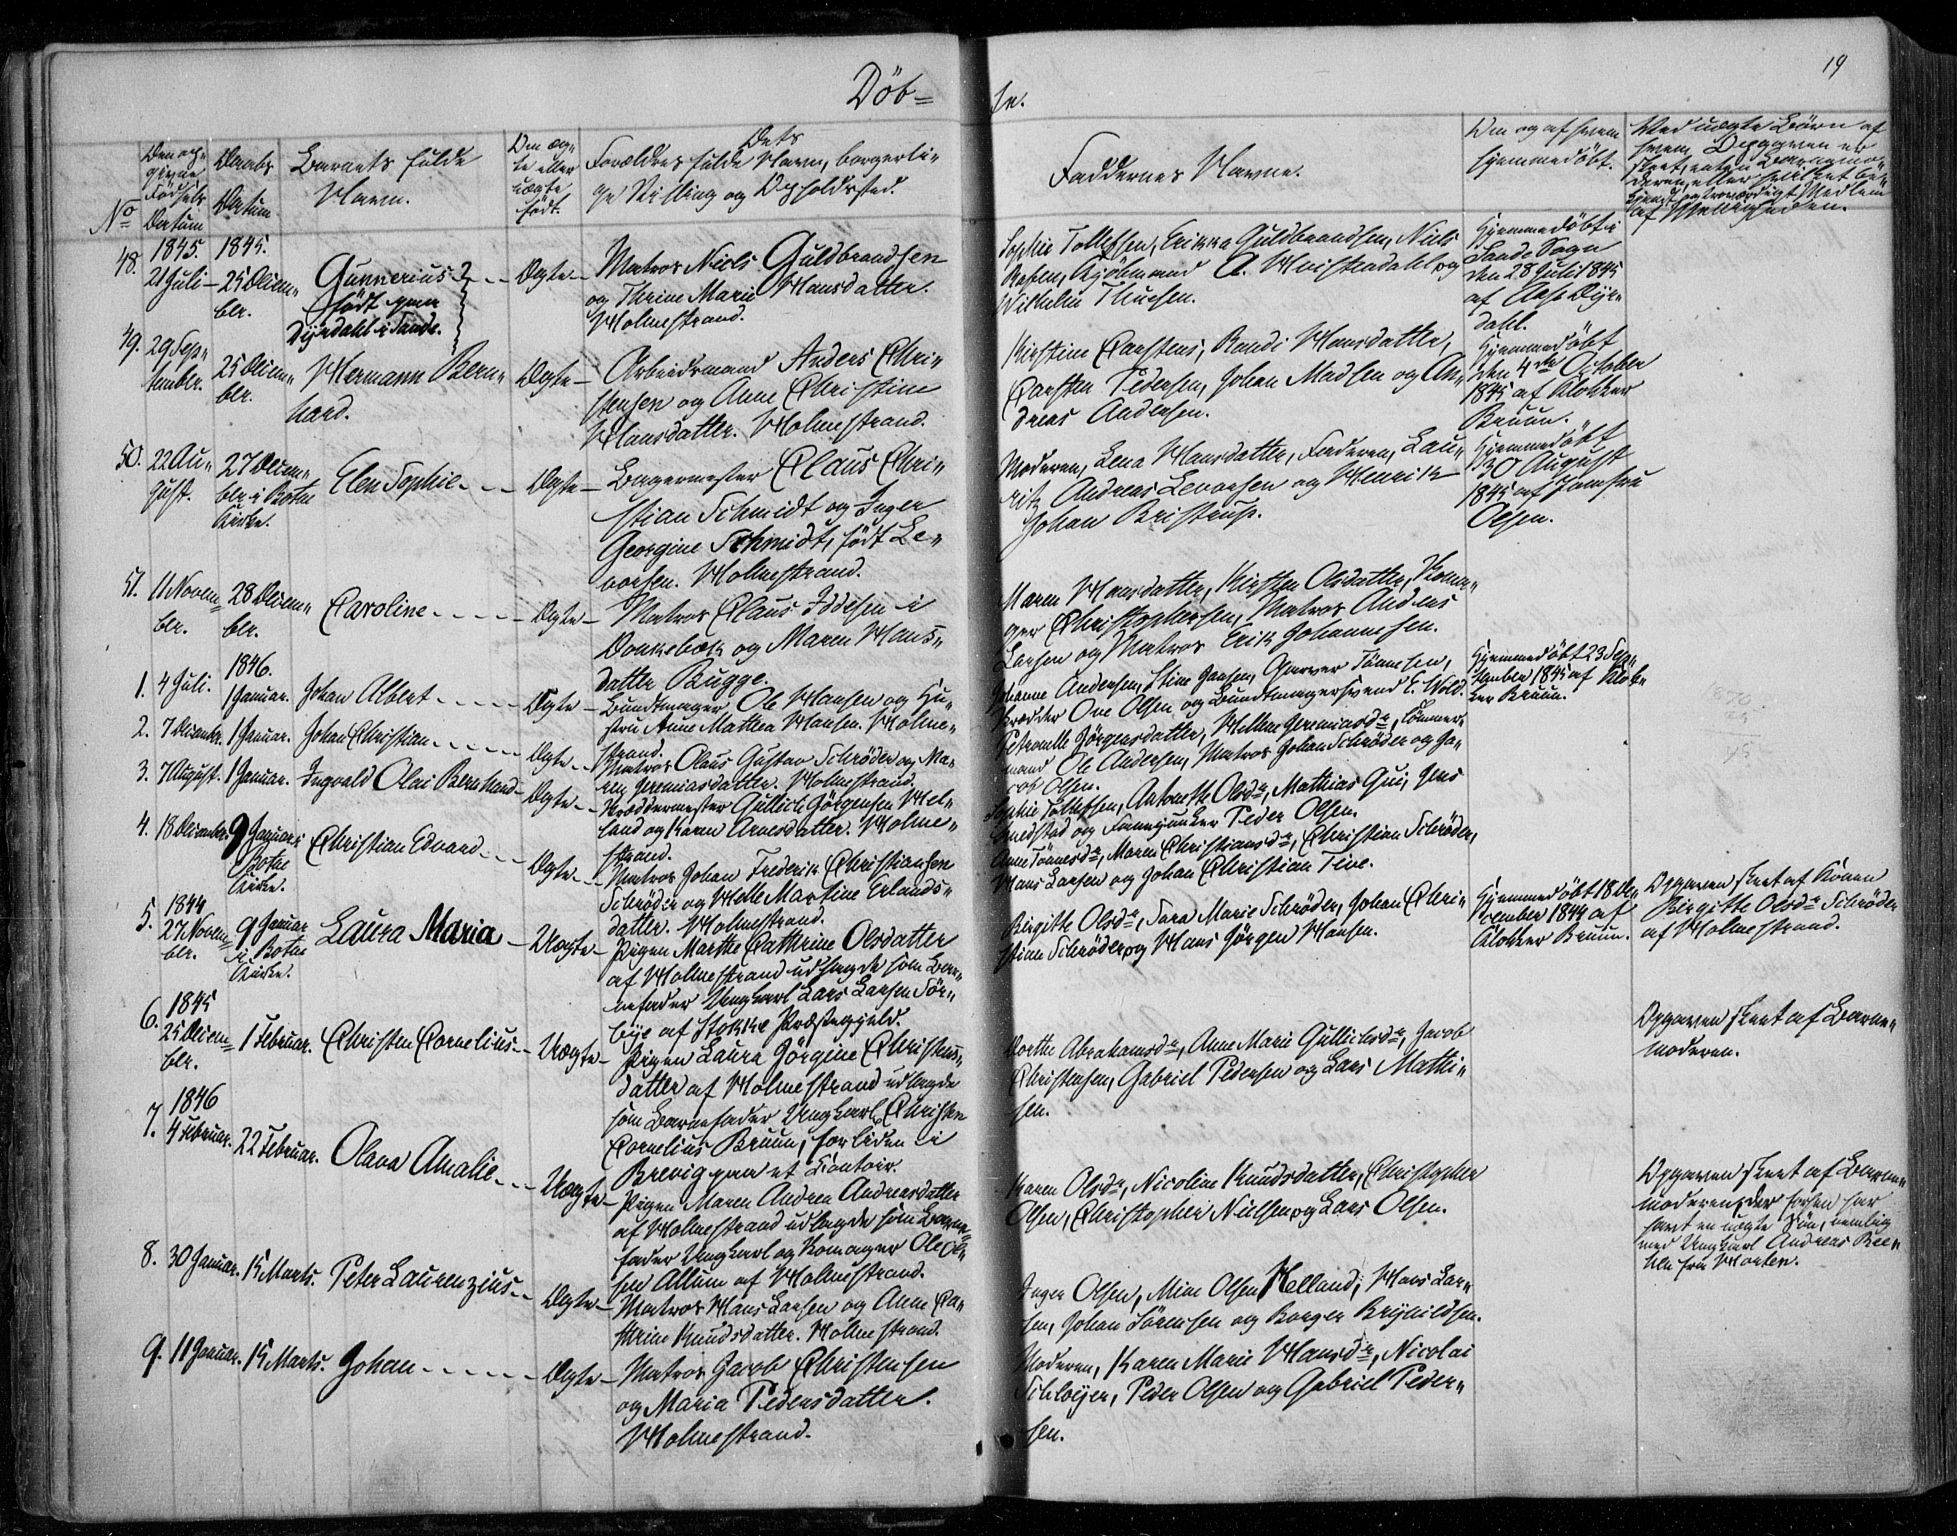 19
Döb=
te.
No
Den op=
givne
Fødsels
Datum
Daabs
Datum
Barnets fulde
Navn.
Om æg=
te eller
uægte
født.
Dets
Forældres fulde Navn, borgerli=
ge Stilling og Opholdssted.
Faddernes Navne.
Om og af hvem
hjemmedöbt.
Ved uægte Börn af
hvem Opgaven er
skeet, enten
af Menigheden.
48.
1845.
21 Juli
1845.
25 Decem=
ber.
Gunnerius
født paa
Dyrdahl i Sande.
Ægte
Matros Niels Guldbrandsen
og Thrine Marie Hansdatter.
Holmestrand.
Sophie Tollefsen, Erikka Guldbrandsen, Niels
Kjöbmand A. og
Wilhelm Thuesen.
Hjemmedöbt i
Sande Sogn
den 28 Juli 1845
af Aase Dyr=
dahl.
49.
29 Sep=
tember.
25 Decem=
ber.
Hermann Bern=
hard.
Ægte
Arbeidsmand Anders Chri=
stensen og Anne Christine
Hansdatter. Holmestrand.
Kirstine Carstens, Randi Hansdatter,
Carsten Pedersen, Johan Madsen og An=
dreas Andersen.
Hjemmedöbt
den 4de October
1845 af Klokker
Bruun.
50.
22 Au=
gust.
27 Decem=
ber i Botne
Kirke.
Elen Sophie
Ægte
Bagermester Claus Chri=
stian Schmidt og Inger
Georgine Schmidt, født Le=
vorsen. Holmestrand.
Moderen, Lena Hansdatter, Faderen, Lau=
ritz Andreas Levorsen og Henrik
Johan Bristrup.
Hjemmedöbt
30 August
1845 af Jomfru
Olsen.
51.
11 Novem=
ber.
28 Decem=
ber.
Caroline
Ægte
Matros Claus Iddesen i
Dunkebæk og Maren Hans=
datter Bugge.
Maren Hansdatter, Kirsten Olsdatter, Koma=
ger Christophersen, Matros Anders
Larsen og Matros Erik Johannesen.
1.
4 Juli.
1846.
1 Januar.
Johan Albert
Ægte
Bundtmager Ole Hansen og Hu=
stru Anne Mathea Hansen. Holme=
strand.
Johanne Andersen, Stine Jansen, Garver Tönnesen,
Krødder Ove Olsen og Bundtmagersvend E. Wold.
Hjemmedöbt 23 Sep=
tember 1845 af Klok=
ker Bruun.
2.
7 Decembr.
1 Januar.
Johan Christian
Ægte
Matros Claus Gustav Schröder og Ma=
ren Jeremiasdatter. Holmestrand.
Petronelle Jörgensdatter, Helene Jeremiasdr, Tömmer=
mand Ole Andersen, Matros Johan Schröder og Ja=
cob Olsen.
3.
7 August.
1 Januar.
Ingvald Olai Bernhard
Ægte
Gullich Jörgensen Hel=
land og Karen Arnesdatter. Holme=
strand.
Sophie Tollefsen, Antonette Olsdr, Mathias Qui, Jens
Smedstad og Peder Olsen.
4.
18 December.
9 Januar i
Botne
Kirke.
Christian Edvard
Ægte
Matros Johan Frederik Christiansen
Schröder og Helle Martine Erlands=
datter. Holmestrand.
Anne Tönnesdr, Maren Christiansdr, Christian Schröder,
Hans Larsen og Johan Christian Tine.
5.
1844
27 Novem=
ber.
9 Januar
i Botne
Kirke.
Laura Maria
Uægte
Pigen Marthe Cathrine Olsdatter
af Holmestrand udlagde som Bar=
nefader Ungkarl Lars Larsen Tör=
bye af Stokke Præstegjeld.
Birgitte Olsdr, Sara Marie Schröder, Johan Chri=
stian Schröder og Hans Jörgen Hansen.
Hjemmedöbt 18 De=
cember 1844 af
Klokker Bruun.
Opgaven skeet af Konen
Birgitte Olsdr Schröder
af Holmestrand.
6.
1845
25 Decem=
ber.
1 Februar.
Christen Cornelius
Uægte
Pigen Laura Jörgine Christens=
datter af Holmestrand udlagde
som Barnefader Ungkarl Christen
Cornelius Bruun, forliden i
Brevig paa et Contoir.
Dorthe Abrahamsdr, Anne Marie Gullichsdr, Jacob
Christensen, Gabriel Pedersen og Lars Mathi=
sen.
Opgaven skeet af Barne=
moderen.
7.
1846
4 Februar.
22 Februar.
Olava Amalie
Uægte
Pigen Maren Andrea Andreasdatter
af Holmestrand udlagde som Barne=
fader Ungkarl og Komager Ole Ol=
sen Allum af Holmestrand.
Karen Olsdr, Nicoline Knudsdatter, Christopher
Olsen, Christopher Nielsen og Lars Olsen.
Opgaven skeet af Barne=
moderen, der forhen har
havt en uægte Sön, nemlig
med Ungkarl Andreas
fra Horten.
8.
30 Januar.
15 Marts.
Peter Laurenzius
Ægte
Matros Hans Larsen og Anne Ca=
thrine Knudsdatter. Holmestrand.
Inger Olsen, Mine Olsen Helland, Hans Lar=
sen, Johan Sörensen og Borger Brynildsen.
9.
11 Januar.
15 Marts.
Johan
Ægte
Matros Jacob Christensen
og Maria Pedersdatter.
Holmestrand.
Moderen, Karen Marie Hansdr, Nicolai
Schlöyer, Peder Olsen og Gabriel Peder=
sen.